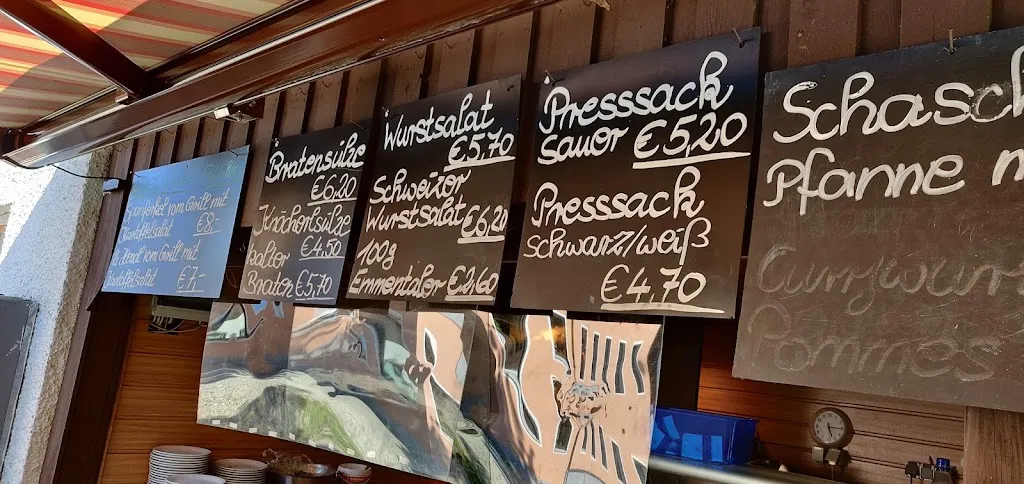 Spanferkel vom Grill mit
Kartoffelsalat €8,-
vom Grill mit
Kartoffelsalat €7,-
Bratensülze
€6,20
Knöcherlsülze
€4,50
kalter
Braten €5,70
Wurstsalat
€5,70
Schweizer
Wurstsalat €6,20
100g
Emmentaler €2,60
Presssack
sauer €5,20
Presssack
schwarz/weiß
€4,70
Schasch
Pfanne m
Currywurs
Pommes